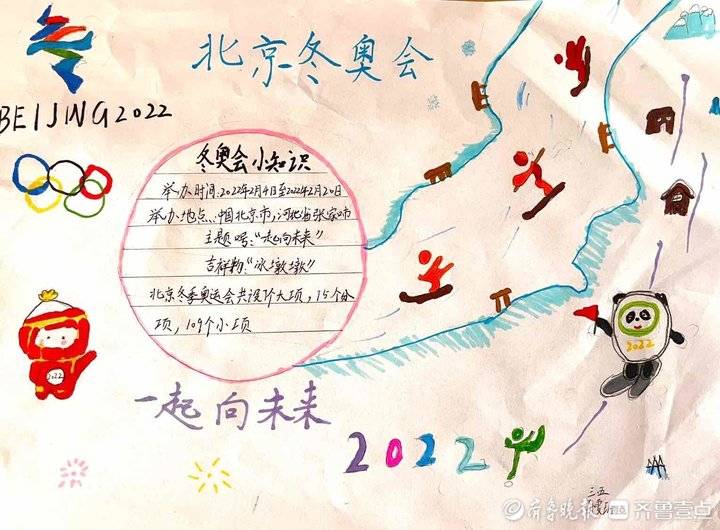 北京冬奥会
BEIJING 2022
冬奥会小知识
举办时间:2022年2月4日至2022年2月20日
举办地点:中国北京市,河北省张家口市
主题口号:“一起向未来”
吉祥物:“冰墩墩”
北京冬季奥运会共设7个大项,15个分
项,109个小项
2022
2022
一起向未来
2022
三五
齐鲁晚报 齐鲁壹点